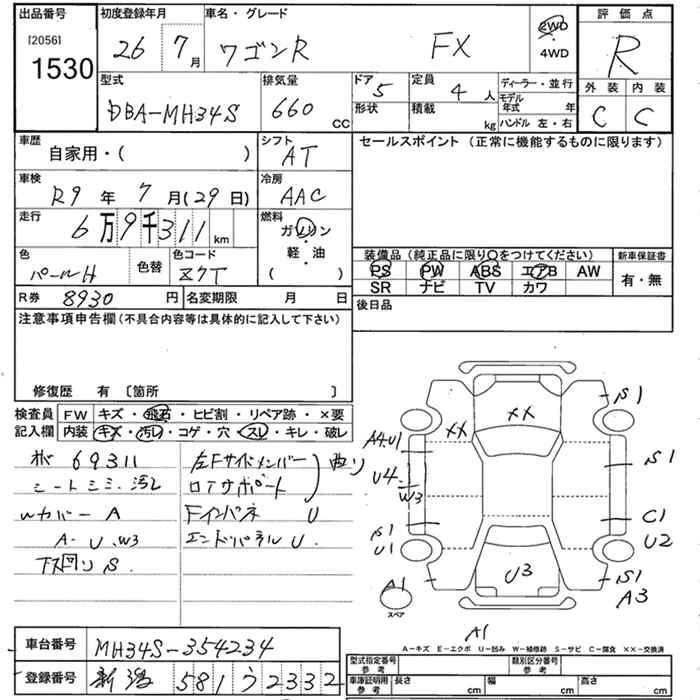 出品番号
[2056]
1530
初度登録年月
26 7月
車名・グレード
ワゴンR FX
2WD
・
4WD
評価点
R
外装 内装
C C
型式
DBA-MH34S
排気量
660 CC
ドア 5
形状
定員 4人
積載 kg
ディーラー・並行
モデル年式 年
ハンドル 左・右
車歴
自家用・( )
シフト
AT
セールスポイント (正常に機能するものに限ります)
車検
R9年 7月(29日)
冷房
AAC
走行
6万9千311km
燃料
ガソリン
・
軽・油
( )
色
パールH
色替
色コード
Z7T
装備品 (純正品に限り○をつけてください)
PS PW ABS エアB AW
SR ナビ TV カワ
新車保証書
有・無
R券 8930円
名変期限 月 日
後日品
注意事項申告欄(不具合内容等は具体的に記入して下さい)
修復歴 有 〔箇所 〕
検査員記入欄
FW キズ・飛石・ヒビ割・リペア跡・×要
内装 キズ・汚レ・コゲ・穴・スレ・キレ・破レ
69311
シートシミ・汚レ
Wカバー A
A- U. W3
下回り S
左Fサイドメンバー
ロアサポート
曲り
Fインパネ U
エンドパネル U.
XX
XX
S1
A4.U1
U4
W3
S1
U1
S1
C1
U2
S1
A3
U3
A1
スペア
A1
A-キズ E-エクボ U-凹み W-補修跡 S-サビ C-腐食 ××-交換済
車台番号
MH34S-354234
登録番号
新潟 581 う 2332
型式指定番号
参考
類別区分番号
参考
車庫証明用
参考
長さ cm
幅 cm
高さ cm